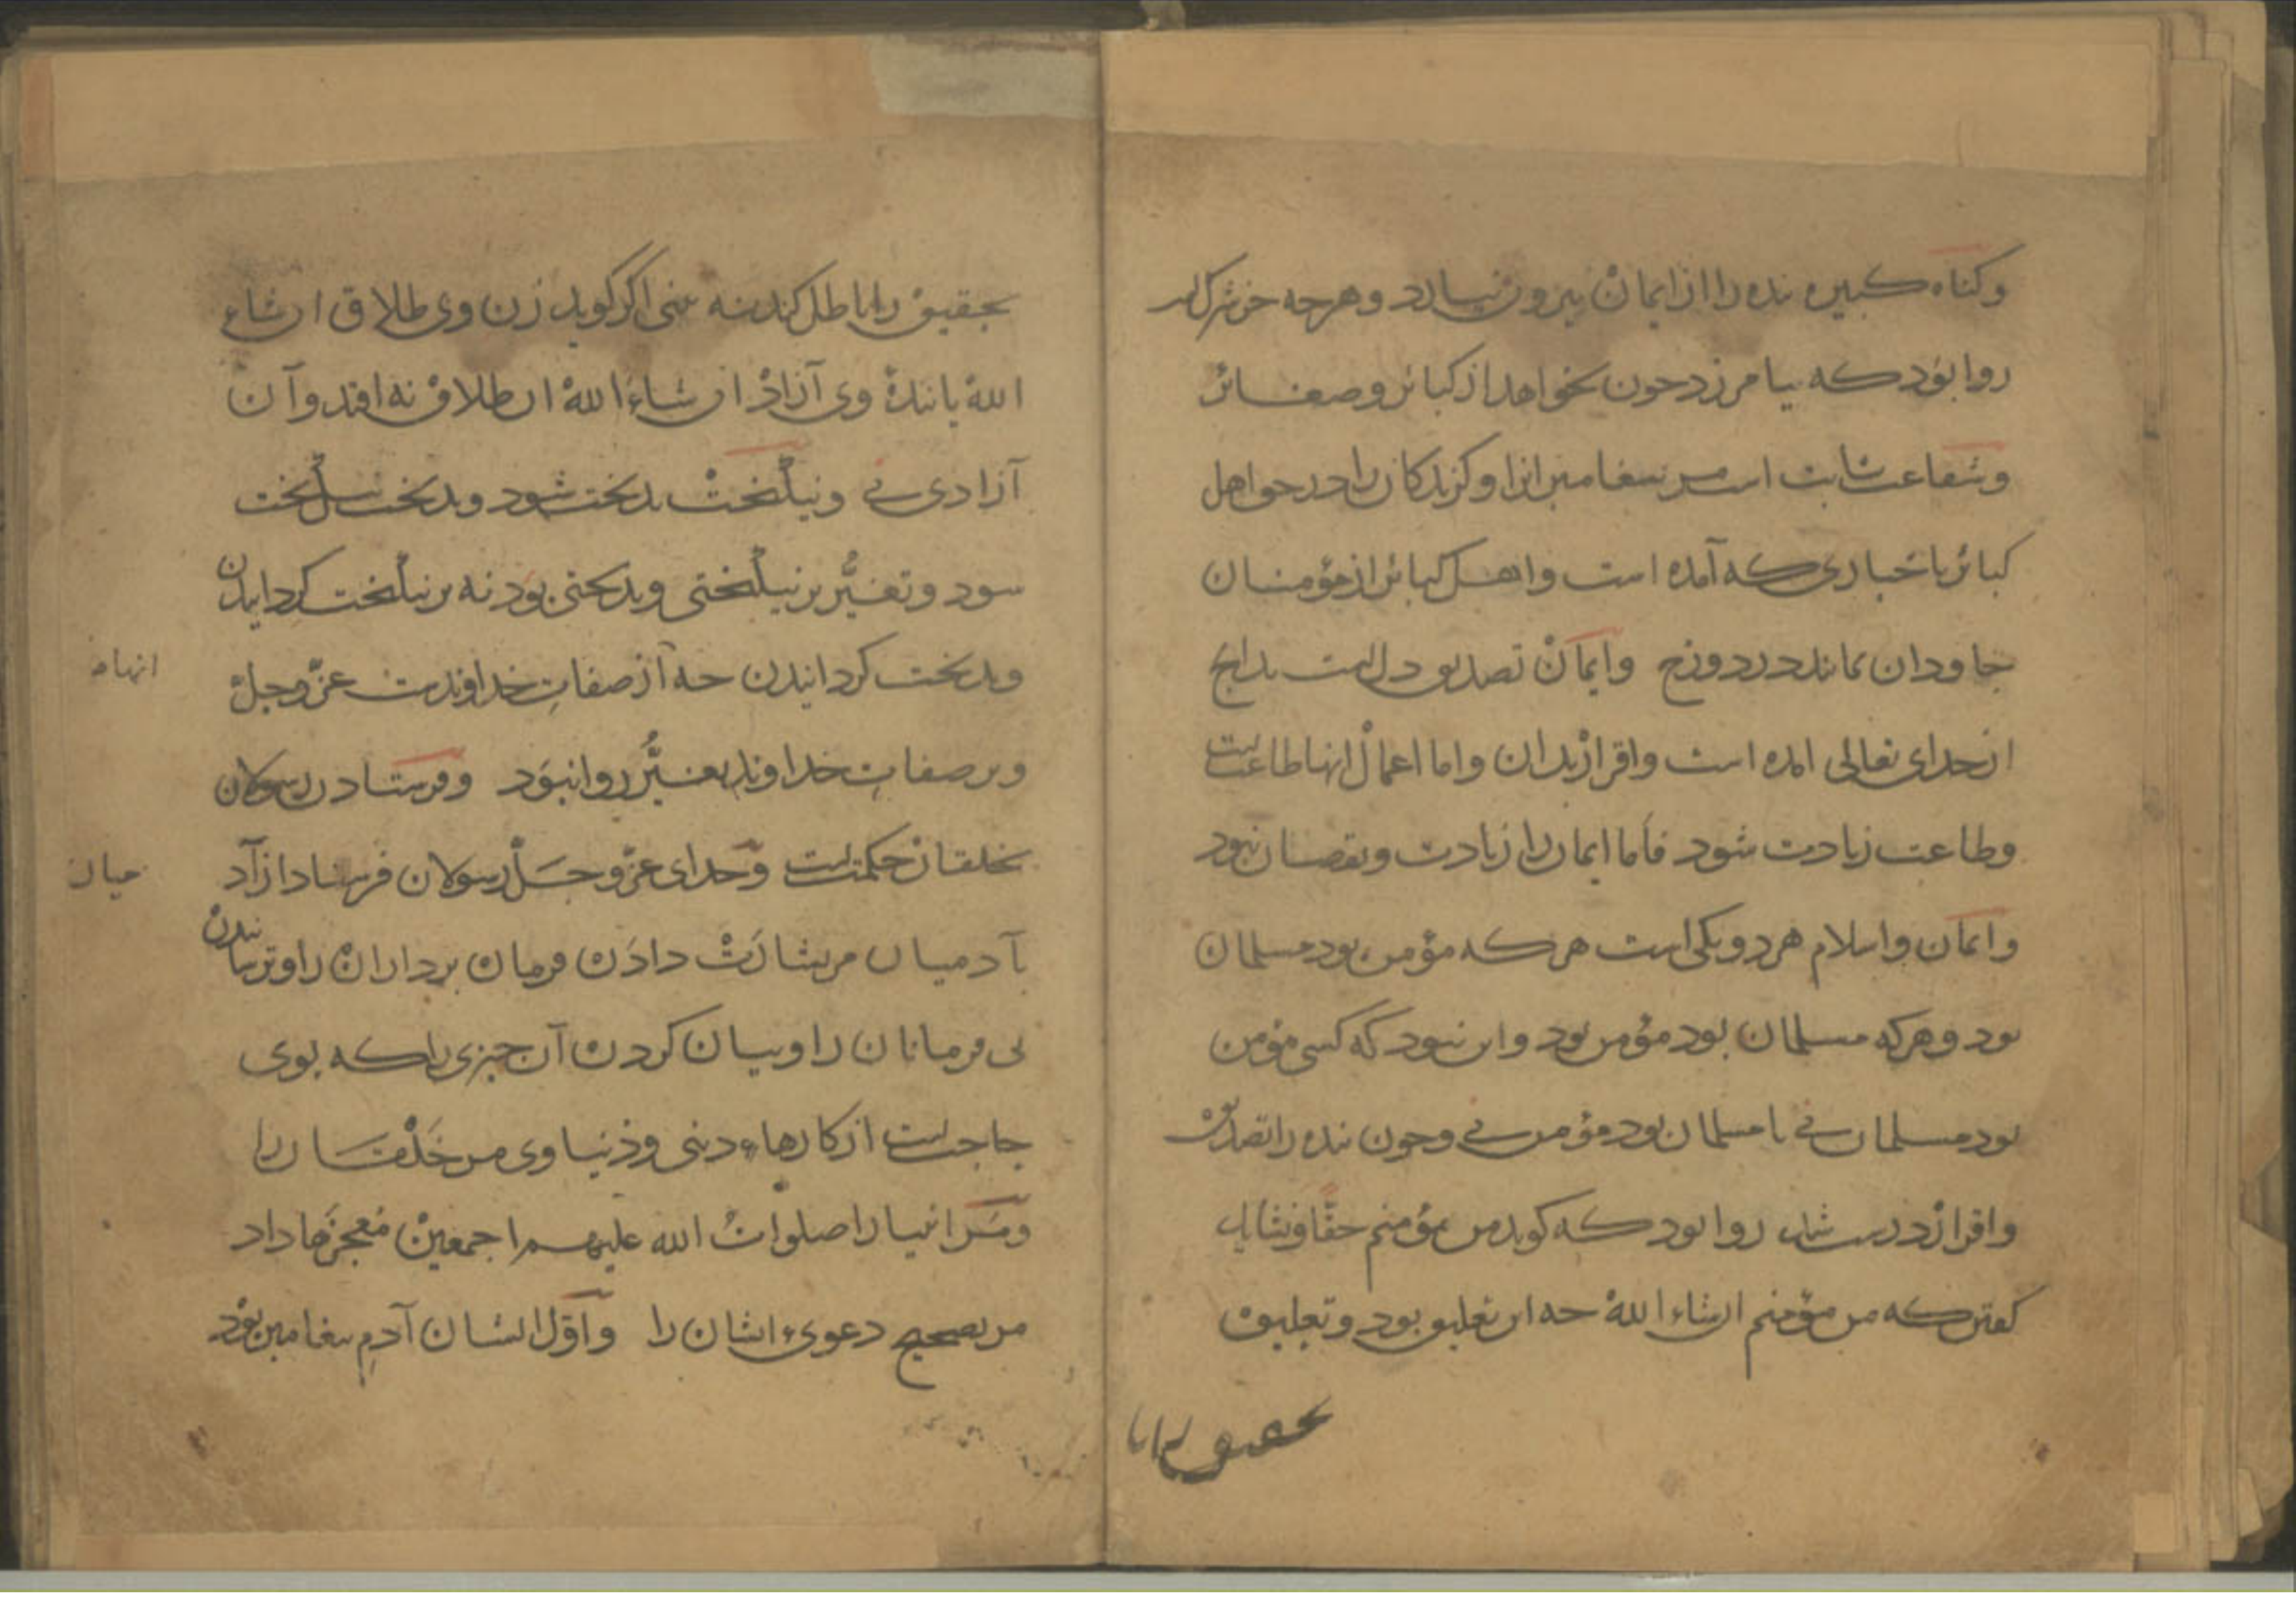 وکناه کبیره بنده را از ایمان بیرون نیارد و هرچه جز شرک است
روا بود که بیامرزد جون بخواهد از کبائر و صغائر
و شفاعت ثابت است مر بیغامبرانرا و کزیدکان را در حق اهل
کبائر باخباری که آمده است و اهل کبائر از مؤمنان
جاودان نمانند در دوزخ و ایمان تصدیق دلست بدانج
از خدای تعالی امده است و اقرار بدان و اما اعمال انها طاعتست
و طاعت زیادت شود فاما ایمان را زیادت و نقصان نبود
و ایمان و اسلام هر دو یکی است هر که مؤمن بود مسلمان
بود و هر که مسلمان بود مؤمن بود و این نبود که کسی مؤمن
بود مسلمان نی یا مسلمان بود مؤمن نی و جون بنده را تصدیق
و اقرار درست شد روا بود که کوید من مؤمنم حقا و نشاید
کفتن که من مؤمنم ان شاء الله جه این تعلیق بود و تعلیق
تحقیق را با
تحقیق را باطل کند نه بینی اکر کوید زن وی طلاق ان شاء
الله یا بندهٔ وی آزاد ان شاء الله ان طلاق نه افتد و آن
آزادی نی و نیکبخت بدبخت شود و بدبخت نیکبخت
شود و تغیر بر نیکبختی و بدبختی بود نه بر نیکبخت کردانیدن
و بدبخت کردانیدن جه آن از صفات خداوندست عز و جل
و بر صفات خداوند تغیر روا نبود و فرستادن رسولان
بخلقان حکمتست و خدای عز و جل رسولان فرستاد از آد
میان
بآدمیان مر بشارت دادن فرمان برداران را و ترسانیدن
بی فرمانان را و بیان کردن آن جیزی را که بوی
حاجتست از کارهاء دینی و دنیاوی مر خلقان را
و مر انبیا را صلوات الله علیهم اجمعین معجزها داد
مر تصحیح دعویء ایشان را و اول ایشان آدم بیغامبر بود